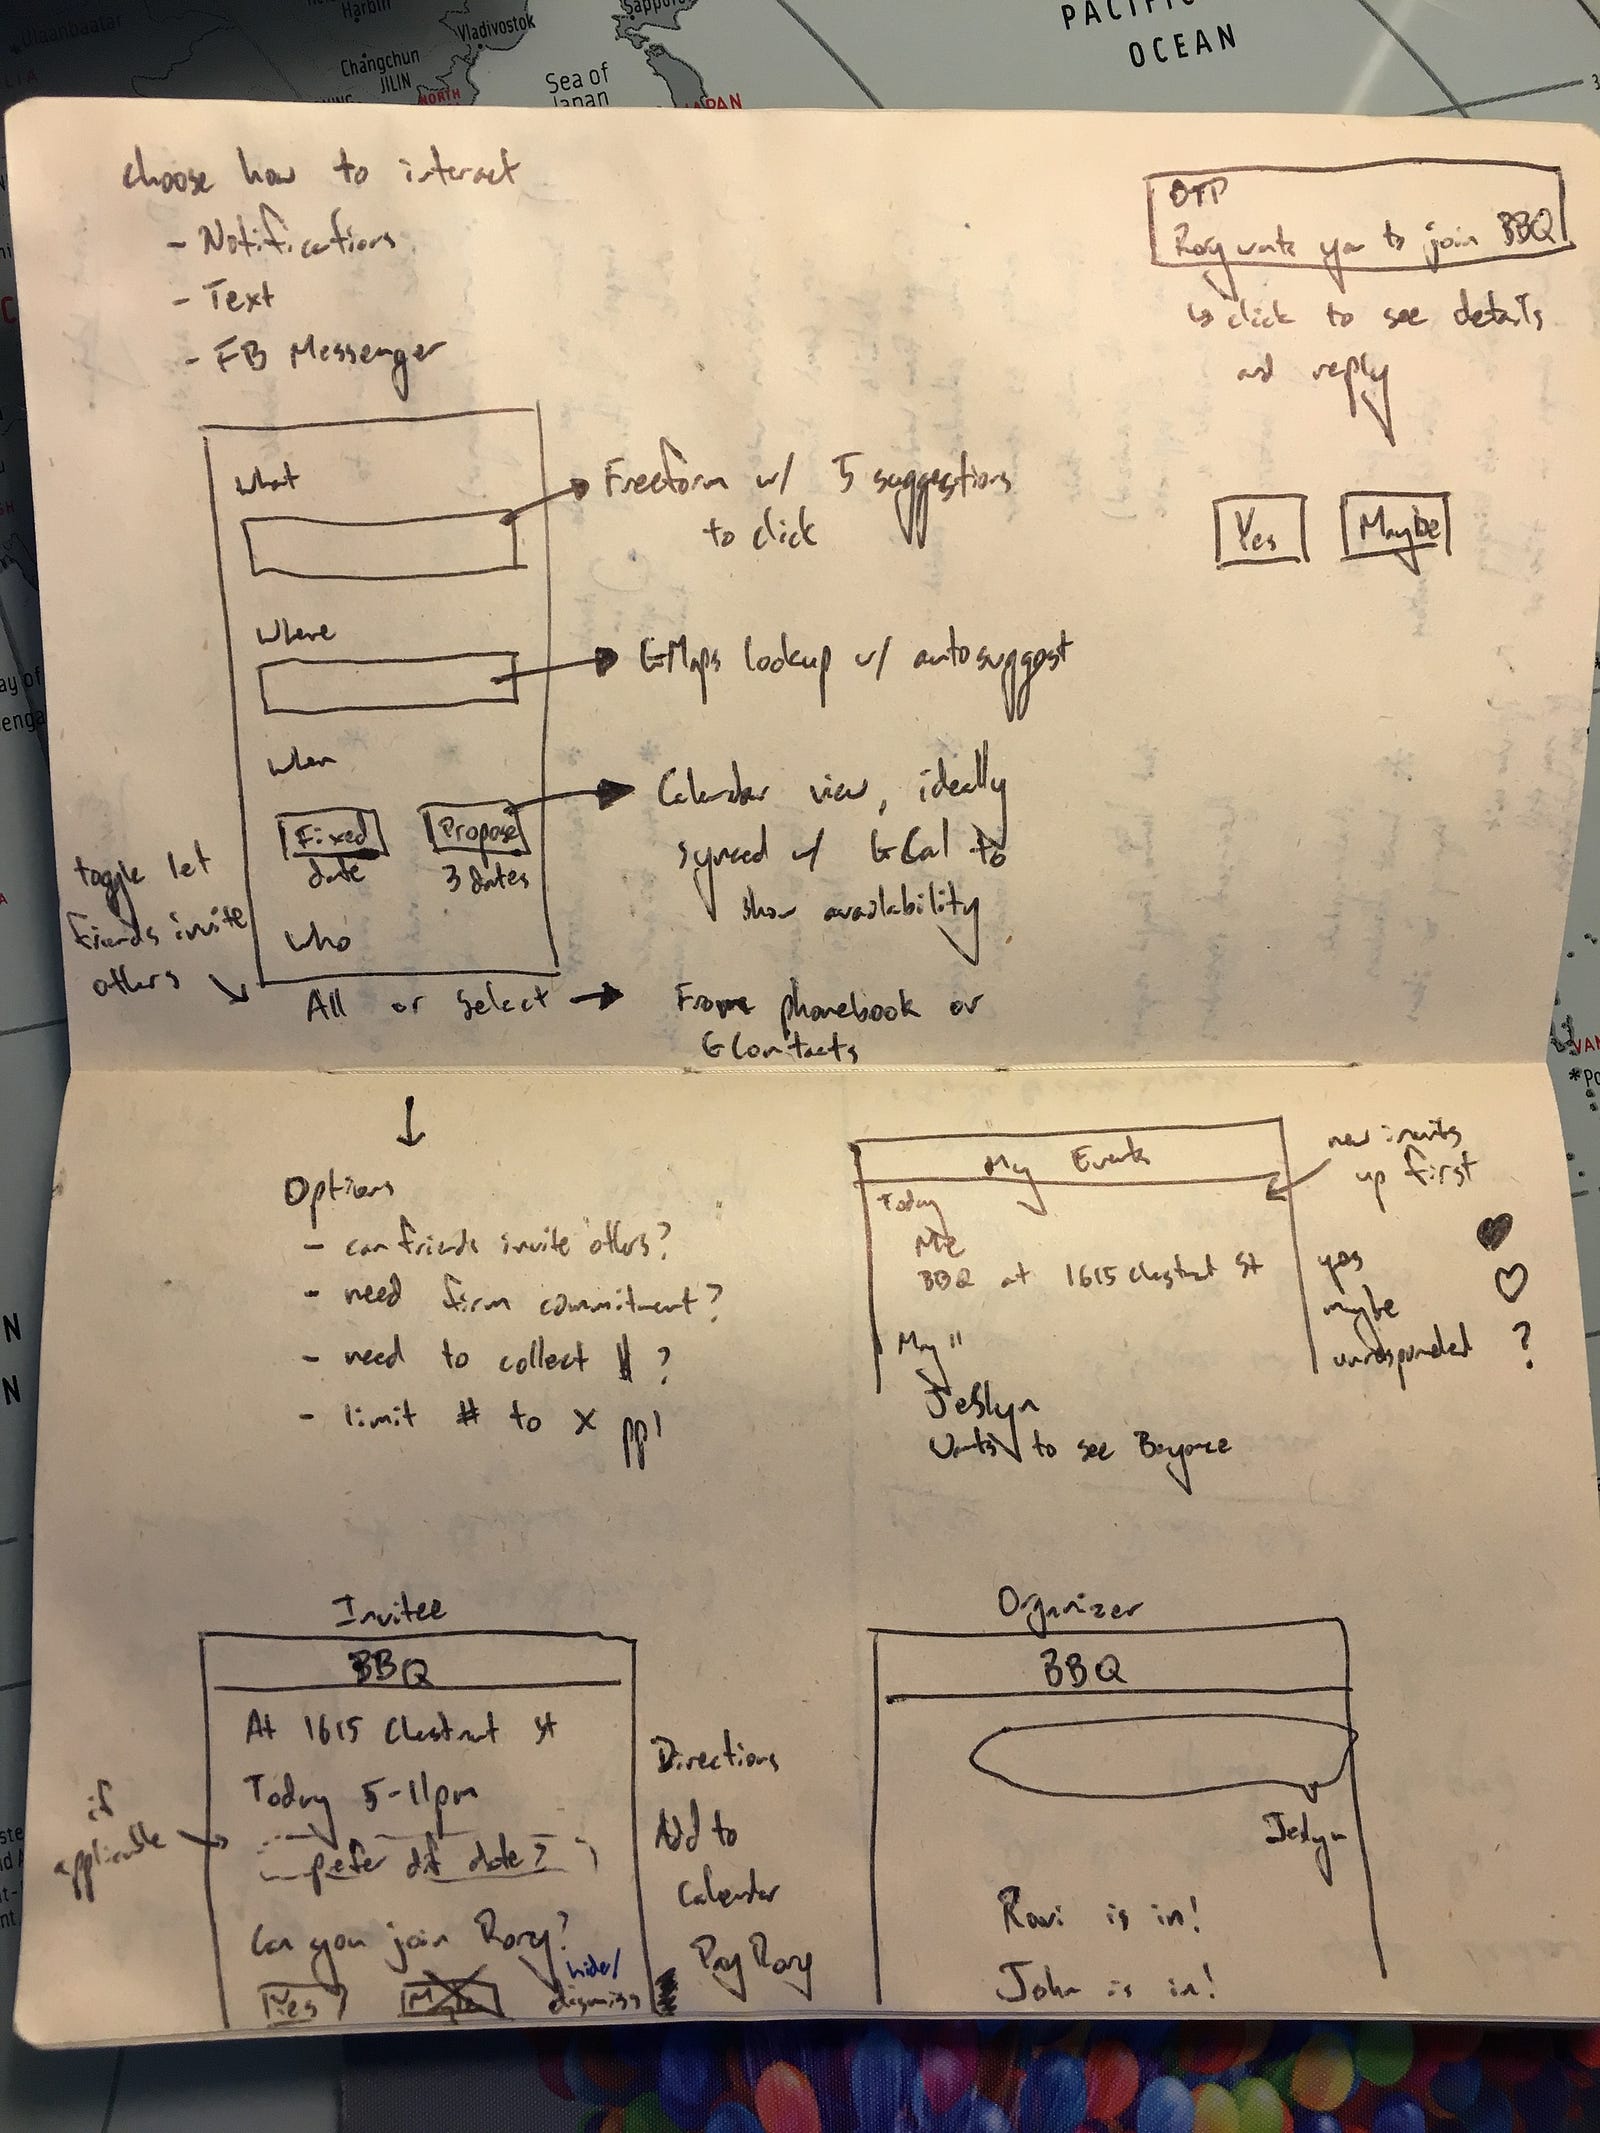 Harbin
Ulaanbaatar
Vladivostok
Changchun
JILIN
NORTH
Sapporo
Sea of
Japan
JAPAN
PACIFIC
OCEAN
choose how to interact
- Notifications
- Text
- FB Messenger
OTP
Rory wants you to join BBQ
↳ click to see details
and reply
Yes
Maybe
What
→ Freeform w/ 5 suggestions
to click
Where
→ GMaps lookup w/ autosuggest
When
Fixed
date
Propose
3 dates
→ Calendar view, ideally
synced w/ GCal to
show availability
toggle let
friends invite
others
Who
All or Select → From phonebook or
GContacts
Options
- can friends invite others?
- need firm commitment?
- need to collect $?
- limit # to x ppl
My Events
new invites
up first
Today
Me
BBQ at 1615 Chestnut St
yes
maybe
unresponded ?
May 11
Jeslyn
Wants to see Beyonce
Invitee
BBQ
At 1615 Chestnut St
Today 5-11pm
prefer dif date?
if
applicable
Can you join Rory?
Yes
Maybe
hide/
dismiss
Directions
Add to
Calendar
Pay Rory
Organizer
BBQ
Jeslyn
Ravi is in!
John is in!